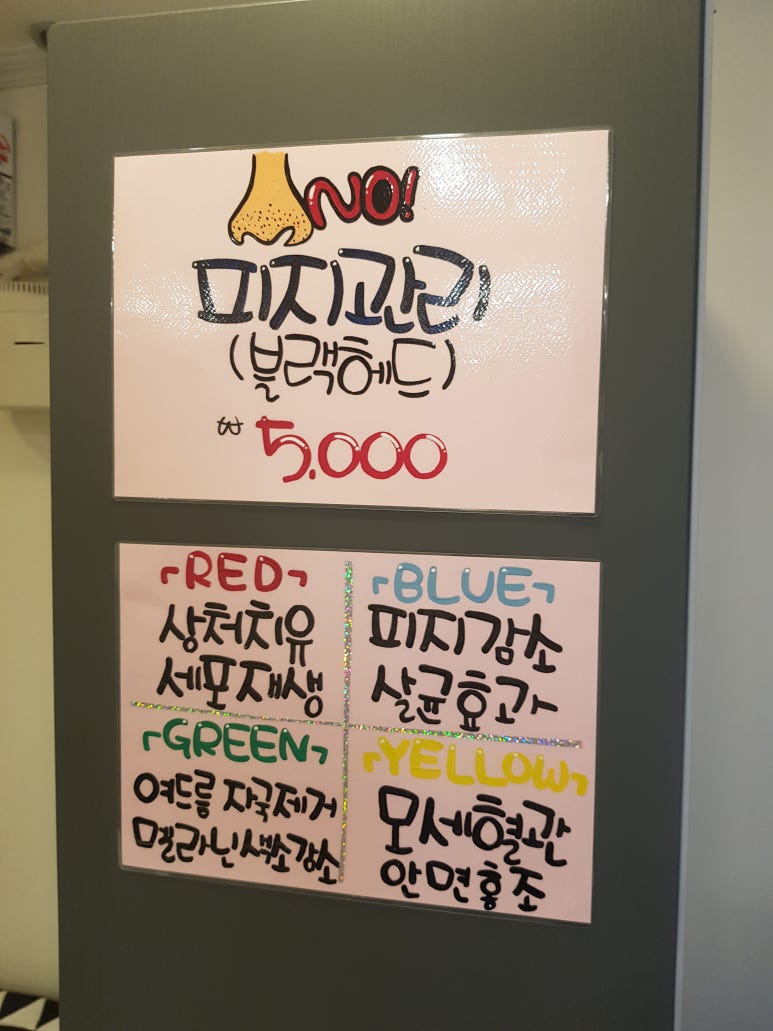 NO!
피지관리
(블랙헤드)
₩ 5.000
「RED」
상처치유
세포재생
「BLUE」
피지감소
살균효과
「GREEN」
여드름 자국제거
멜라닌색소감소
「YELLOW」
모세혈관
안면홍조